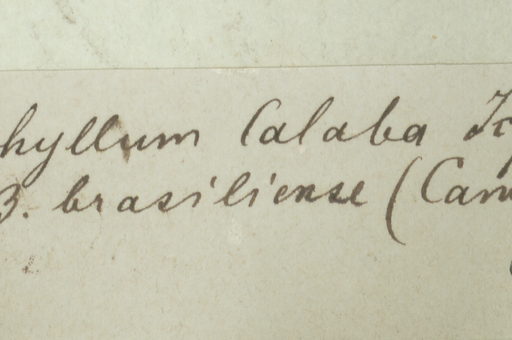 hyllum Calaba
B. brasiliense (Cam